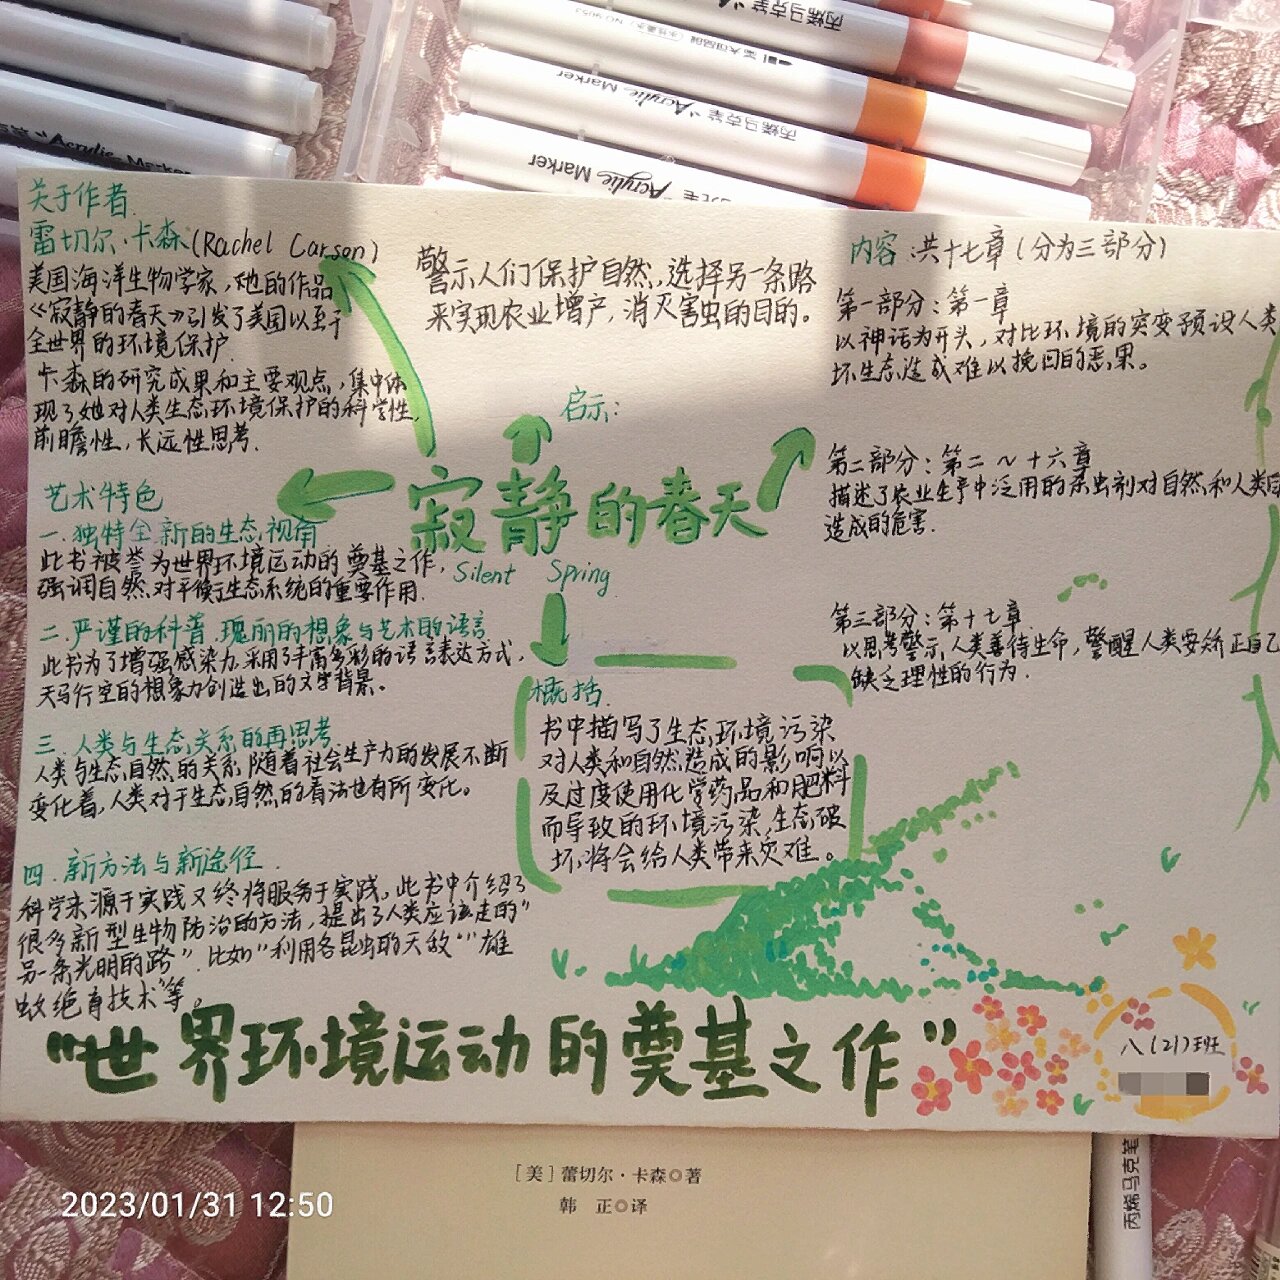 丙烯马克笔 Acrylic Marker
Acrylic Marker
丙烯马克笔 Acrylic Marker
Acrylic Marker
关于作者
雷切尔·卡森(Rachel Carson)
美国海洋生物学家,她的作品
《寂静的春天》引发了美国以至于
全世界的环境保护.
卡森的研究成果和主要观点,集中体
现了她对人类生态环境保护的科学性,
前瞻性,长远性思考.
艺术特色
一.独特全新的生态视角
此书被誉为世界环境运动的奠基之作,
强调自然对平衡生态系统的重要作用.
二.严谨的科普.瑰丽的想象与艺术的语言
此书为了增强感染力,采用了丰富多彩的语言表达方式,
天马行空的想象力创造出的文字背景。
三.人类与生态关系的再思考
人类与生态自然的关系,随着社会生产力的发展不断
变化着,人类对于生态自然的看法也有所变化。
四.新方法与新途径.
科学来源于实践又终将服务于实践,此书中介绍了
很多新型生物防治的方法,提出了人类应该走的“
另一条光明的路”.比如“利用各昆虫的天敌”“雄
蚊绝育技术”等。
警示人们保护自然,选择另一条路
来实现农业增产,消灭害虫的目的。
启示:
寂静的春天
Silent Spring
概括:
书中描写了生态环境污染
对人类和自然造成的影响以
及过度使用化学药品和肥料
而导致的环境污染,生态破
坏将会给人类带来灾难。
内容:共十七章(分为三部分)
第一部分:第一章
以神话为开头,对比环境的突变预设人类
坏生态造成难以挽回的恶果。
第二部分:第二~十六章
描述了农业生产中泛用的杀虫剂对自然和人类
造成的危害.
第三部分:第十七章
以思考警示人类善待生命,警醒人类要矫正自己
缺乏理性的行为.
“世界环境运动的奠基之作”
八(21)班
[美]蕾切尔·卡森◎著
韩 正◎译
丙烯马克笔
2023/01/31 12:50